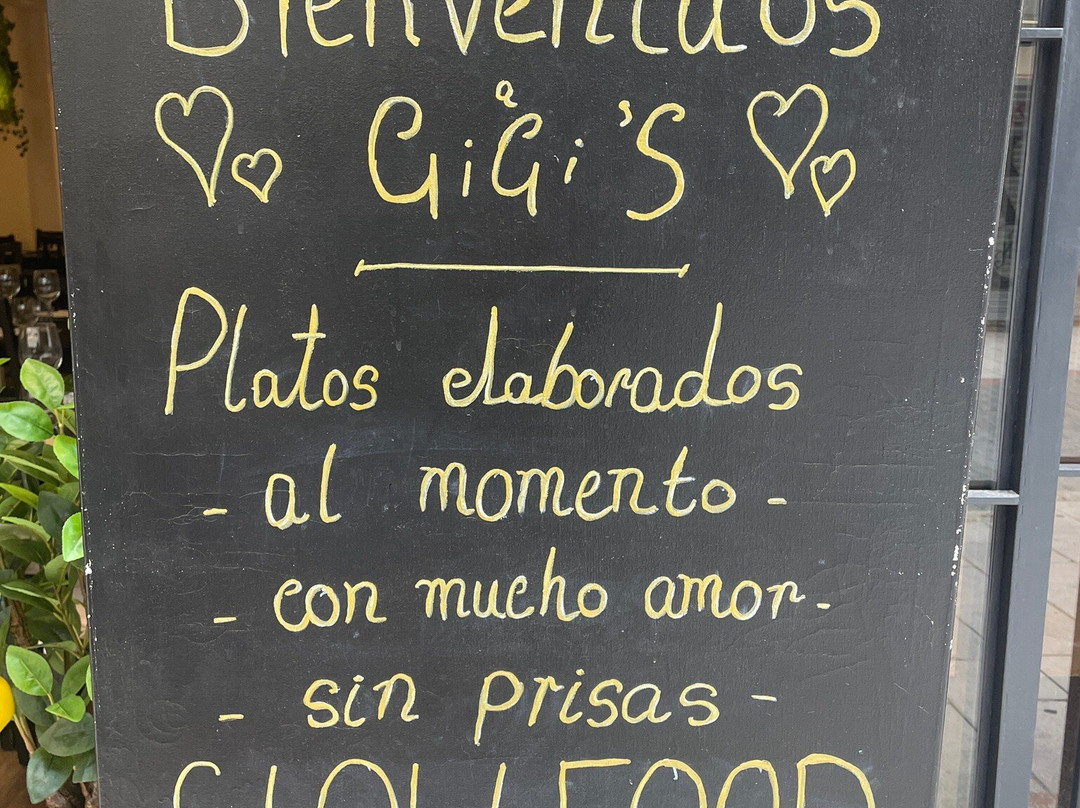 Bienvenidos
a
GiGi'S
Platos elaborados
- al momento -
- con mucho amor -
- sin prisas -
SLOW FOOD